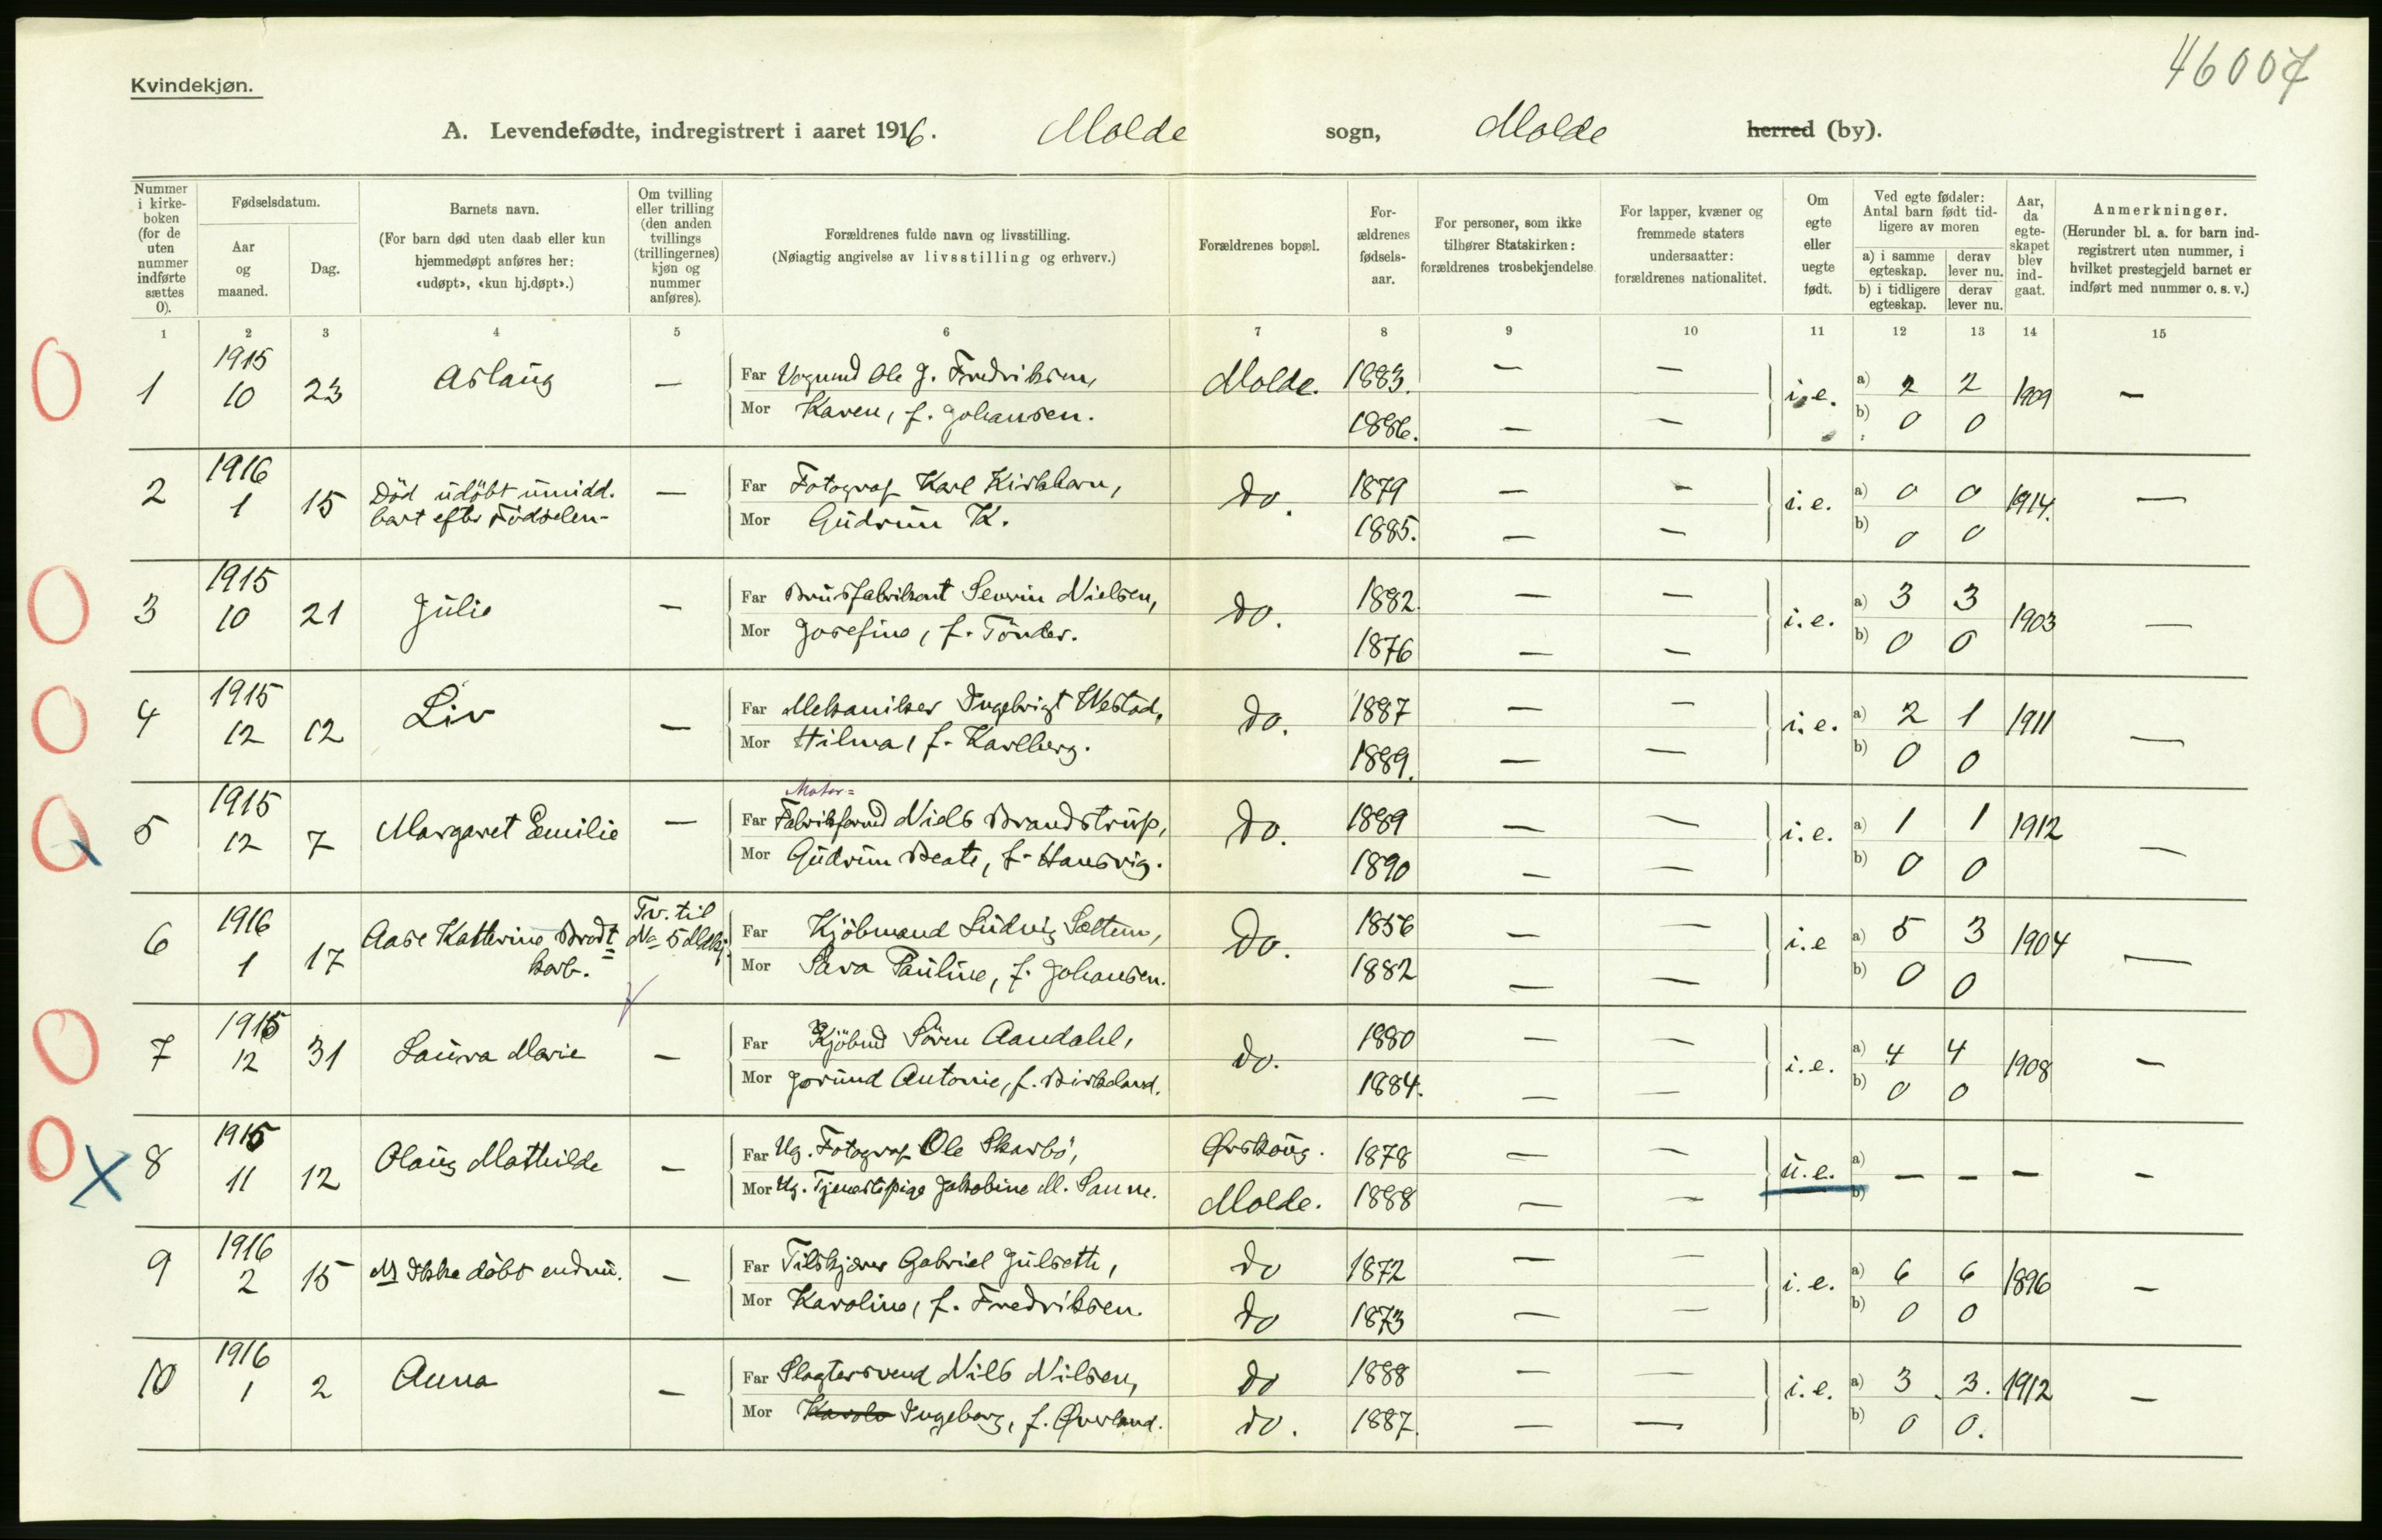 46007
Kvindekjøn.
A. Levendefødte, indregistrert i aaret 1916. Molde sogn, Molde herred (by).
Nummer i kirkeboken (for de uten nummer indførte sættes 0).
Fødselsdatum.
Aar og maaned.
Dag.
Barnets navn.
(For barn død uten daab eller kun hjemmedøpt anføres her: «udøpt», «kun hj.døpt».)
Om tvilling eller trilling (den anden tvillings (trillingernes) kjøn og nummer anføres).
Forældrenes fulde navn og livsstilling.
(Nøiagtig angivelse av livsstilling og erhverv.)
Forældrenes bopæl.
For-ældrenes fødsels-aar.
For personer, som ikke tilhører Statskirken: forældrenes trosbekjendelse
For lapper, kvæner og fremmede staters undersaatter: forældrenes nationalitet.
Om egte eller uegte født.
Ved egte fødsler: Antal barn født tid-ligere av moren
a) i samme egteskap. derav lever nu.
b) i tidligere egteskap. derav lever nu.
Aar, da egte-skapet blev ind-gaat.
Anmerkninger.
(Herunder bl. a. for barn ind-registrert uten nummer, i hvilket prestegjeld barnet er indført med nummer o. s. v.)
1 2 3 4 5 6 7 8 9 10 11 12 13 14 15
1 1915 10 23 Aslaug — Far Vognmd Ole J. Fredriksen, Molde. 1883. — — i.e. a) 2 2 1909 —
Mor Karen, f. Johansen. 1886. — — b) 0 0
2 1916 1 15 Död udöbt umidd. — Far Fotograf Karl Kirkhorn, do. 1879 — — i.e. a) 0 0 1914. —
bart efter Födselen- Mor Gudrun K. 1885. — — b) 0 0
3 1915 10 21 Julie — Far Brusfabrikant Severin Nielsen, do. 1882. — — i.e. a) 3 3 1903 —
Mor Josefine, f. Tönder. 1876 — — b) 0 0
4 1915 12 12 Liv — Far Mekaniker Ingebrigt Westad, do. 1887 — — i.e. a) 2 1 1911 —
Mor Hilma, f. Karlberg. 1889. — — b) 0 0
Motor=
5 1915 12 7 Margaret Emilie — Far Fabrikformd Niels Brandstrup, do. 1889 — — i.e. a) 1 1 1912 —
Mor Gudrun Beate, f. Hansvig. 1890 — — b) 0 0
6 1916 1 17 Aase Katterine Brodt= Tv. til Far Kjöbmand Ludvig Sættem, do. 1856 — — i.e a) 5 3 1904 —
korb. No 5 Mdkj. Mor Sara Pauline, f. Johansen. 1882 — — b) 0 0
7 1915 12 31 Laura Marie — Far Kjöbmd Sören Aandahl, do. 1880 — — i.e. a) 4 4 1908 —
Mor Jorund Antonie, f. Birkeland. 1884. — — b) 0 0
8 1915 11 12 Olaug Mathilde — Far Ug. Fotograf Ole Skarbö, Ørskoug. 1878 — — u.e. a) — — — —
Mor Ug. Tjenestepige Jakobine M. Sanne. Molde. 1888 — — b)
9 1916 2 15 Ikke döbt endnu. — Far Tilskjærer Gabriel Julseth, do 1872 — — i.e. a) 6 6 1896 —
Mor Karoline, f. Fredriksen. do 1873 — — b) 0 0
10 1916 1 2 Anna — Far Slagtersvend Nils Nilsen, do 1888 — — i.e. a) 3. 3. 1912 —
Mor Ingeborg, f. Øverland. do. 1887. — — b) 0 0.